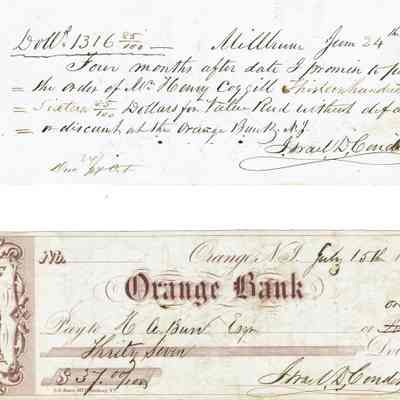 Dolls. 1316 85/100 — Millburn June 24th
Four months after date I promise to pa
the order of Mr Henry Coggill Thirteen hundred
Sixteen 85/100 Dollars for Value Recd without defal
or discount at the Orange Bank N.J
Israel D. Cond
No. Orange N.J. July 15th 1
Orange Bank
or
Pay to H A Burr Esqr
Thirty Seven Dol
$37.00/100 Israel D. Condi